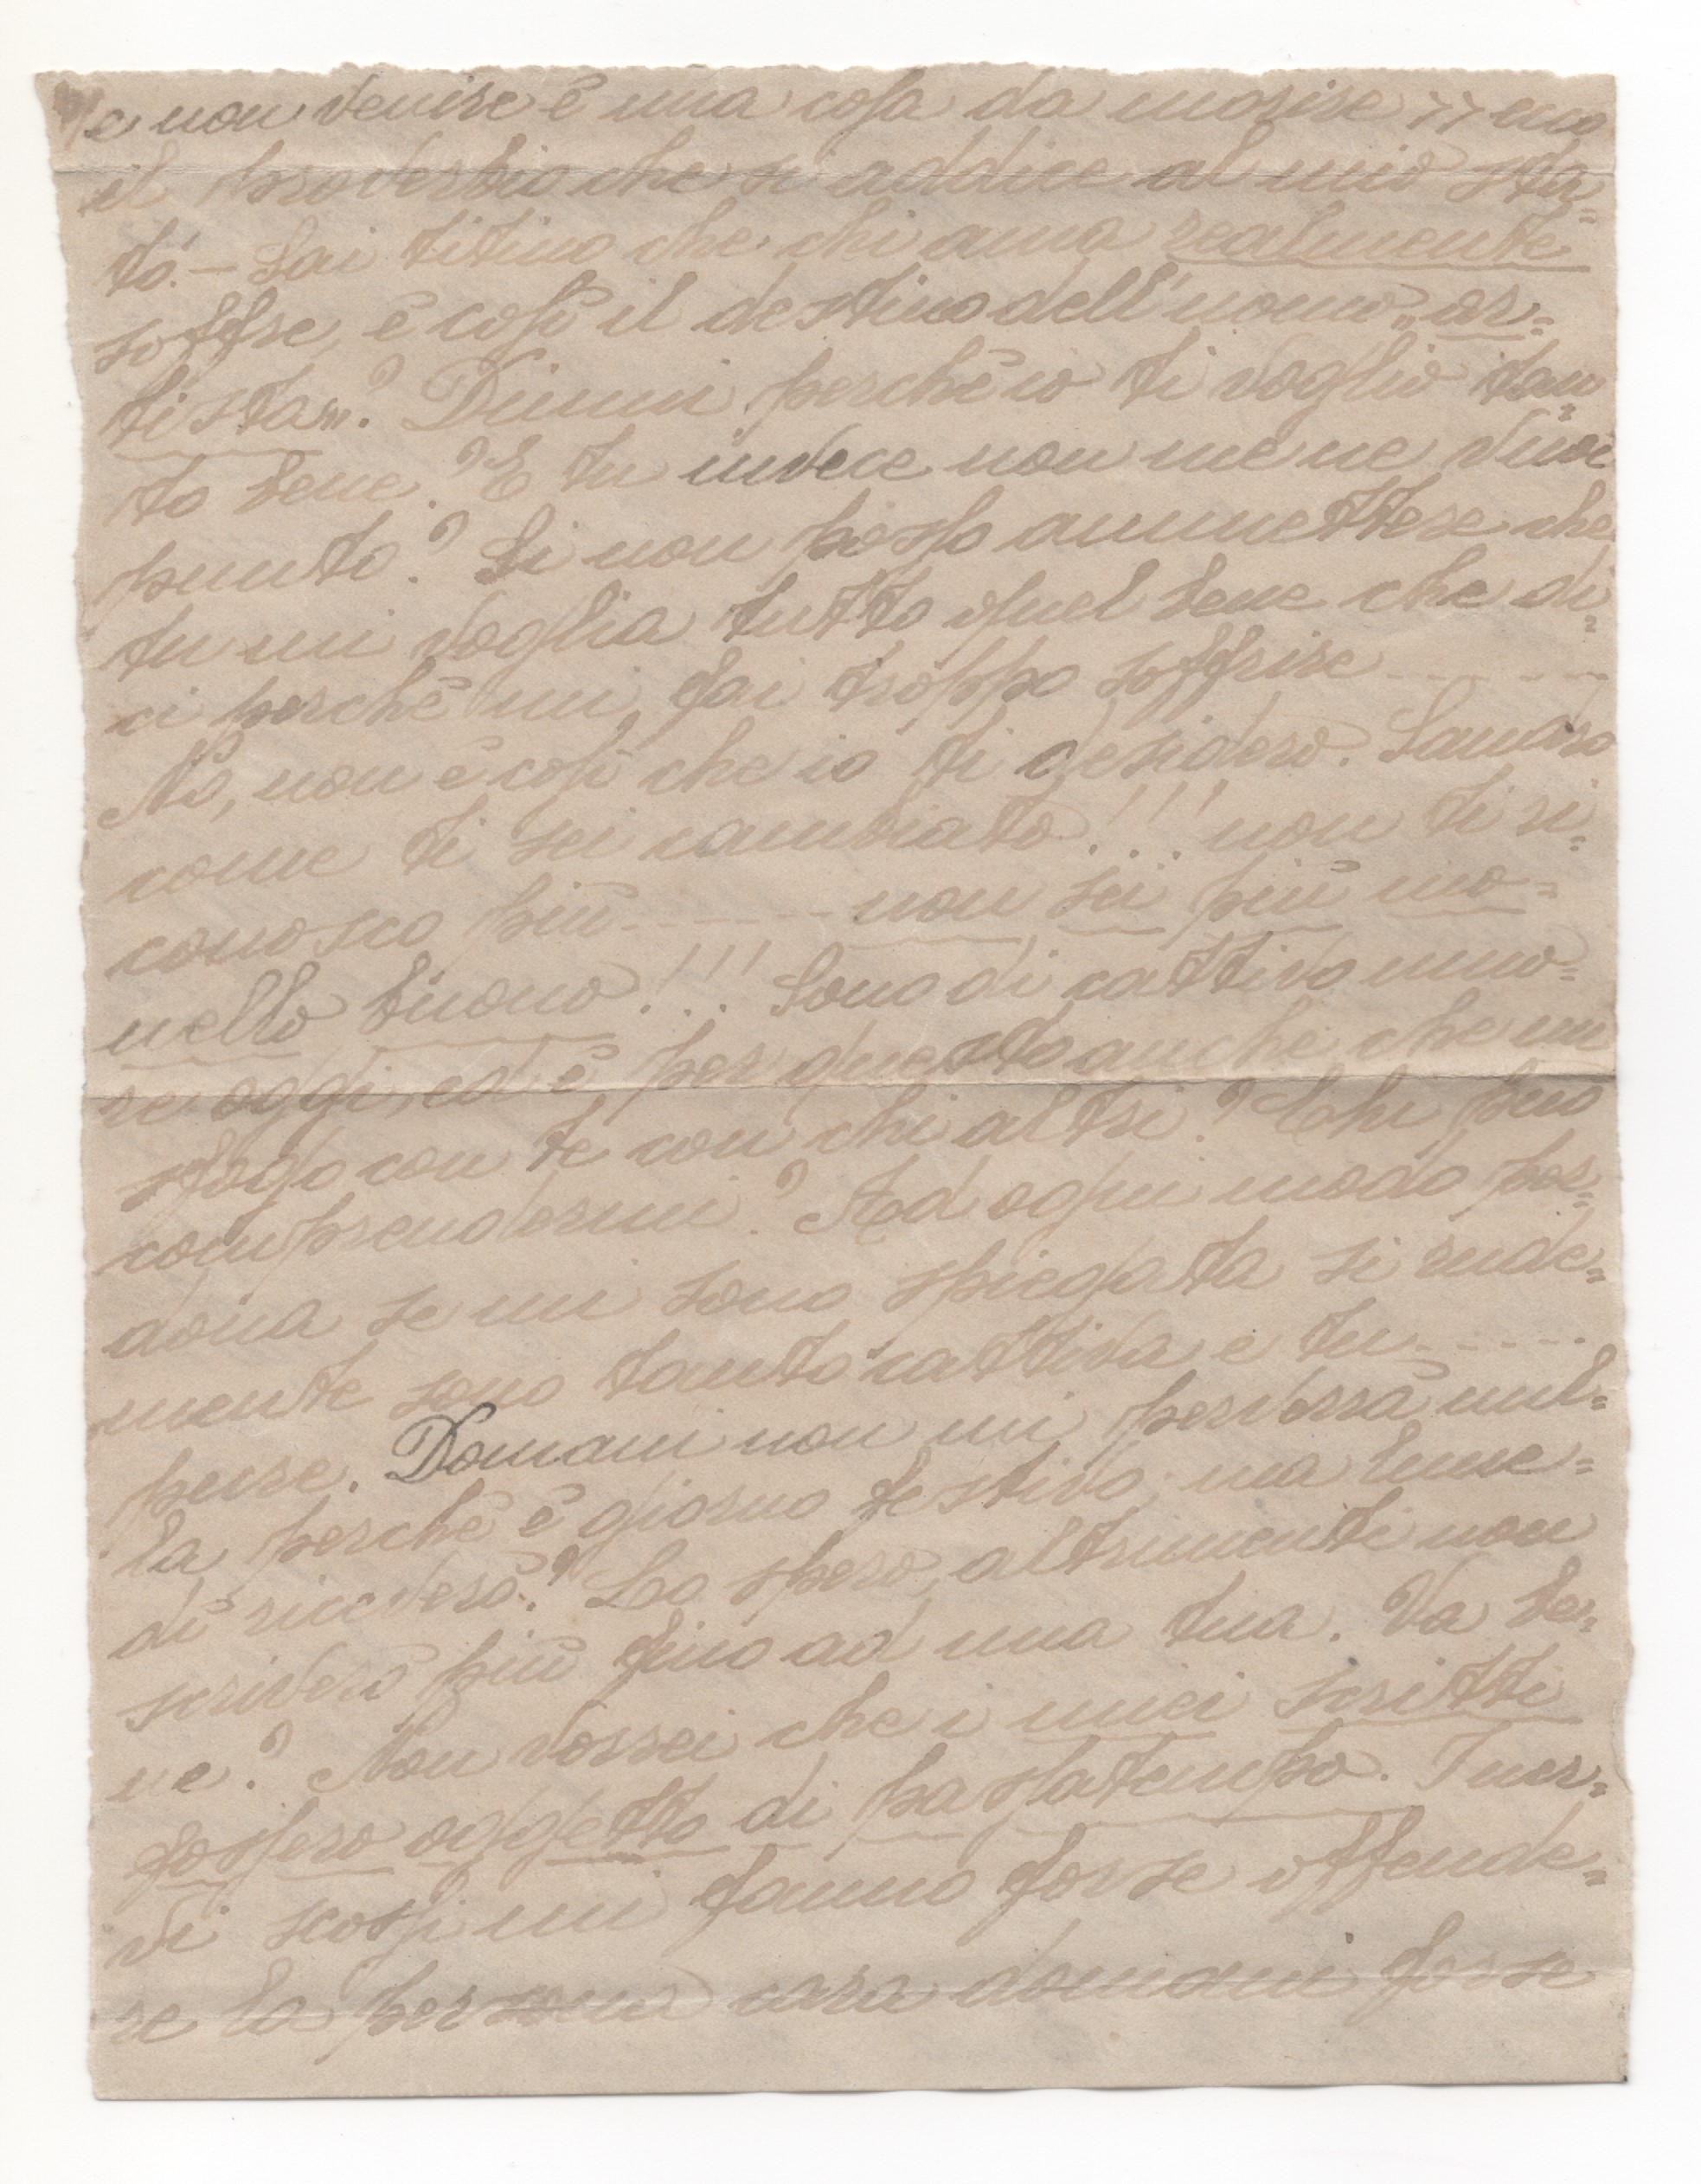 e non venire è una cosa da morire >> ecco
il proverbio che si addice al mio sta=
to. — Sai titino che chi ama realmente
soffre, è così il destino dell'uomo „ar=
tista„? Dimmi perchè io ti voglio tan=
to bene? E tu invece non me ne vuoi
punto? Si non posso ammettere che
tu mi voglia tutto quel bene che di=
ci perchè mi fai troppo soffrire ------
No, non è così che io ti desidero.
come ti sei cambiato!!! non ti ri=
conosco più ------ non sei più mo=
nello buono!!! Sono di cattivo umo=
re oggi, ed è per questo anche che mi
sfogo con te con chi altri? Chi può
comprendermi? Ad ogni modo per=
dona se mi sono spiegata sì rude=
mente sono tanto cattiva e tu -----
pure. Domani non mi perverrà nul=
la perchè è giorno festivo, ma lune=
dì riceverò? Lo spero, altrimenti non
scriverò più fino ad una tua. Va be=
ne? Non vorrei che i miei scritti
fossero oggetto di passatempo. I ner=
vi scossi mi fanno forse offende=
re la persona cara domani forse